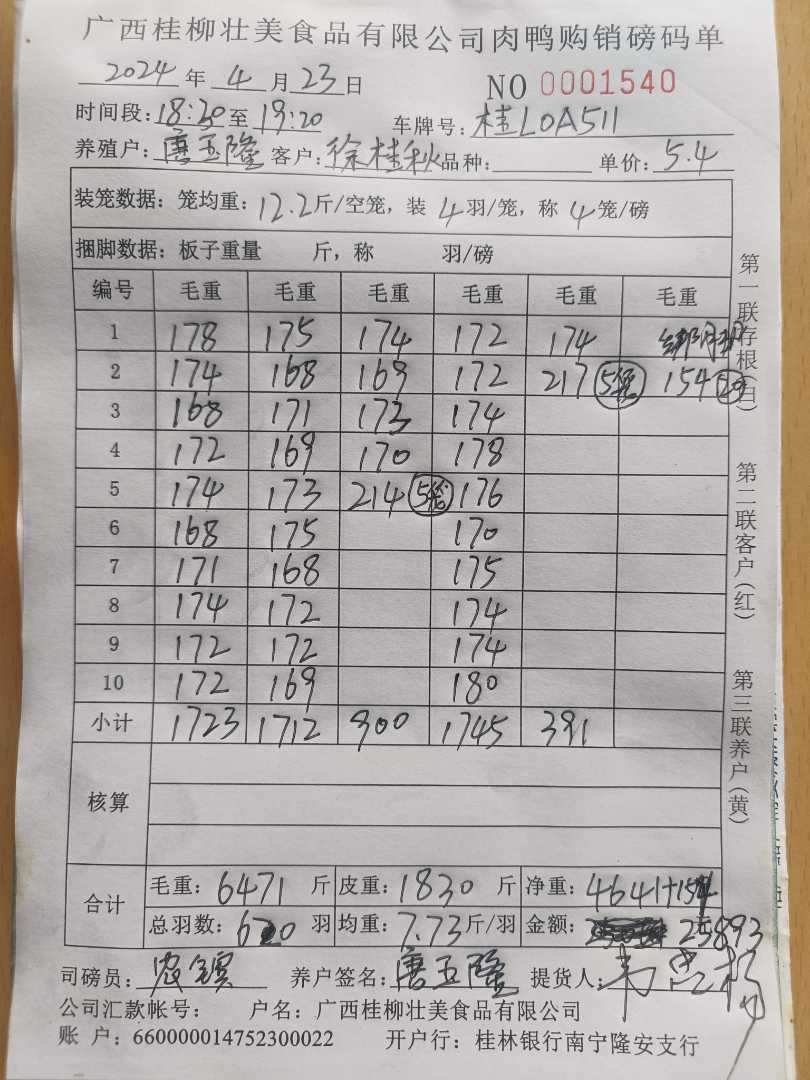 广西桂柳壮美食品有限公司肉鸭购销磅码单
2024年4月23日 NO 0001540
时间段:18:30至19:20 车牌号:桂L0A511
养殖户:唐玉隆 客户:徐桂秋 品种: 单价:5.4
装笼数据:笼均重:12.2斤/空笼,装4羽/笼,称4笼/磅
捆脚数据:板子重量 斤,称 羽/磅
编号 毛重 毛重 毛重 毛重 毛重 毛重
1 178 175 174 172 174
2 174 168 169 172 217 5笼 154
3 168 171 173 174
4 172 169 170 178
5 174 173 214 5笼 176
6 168 175 170
7 171 168 175
8 174 172 174
9 172 172 174
10 172 169 180
小计 1723 1712 900 1745 391
核算
合计 毛重:6471斤 皮重:1830斤 净重:4641+154
总羽数:620羽 均重:7.73斤/羽 金额:25893
司磅员: 养户签名:唐玉隆 提货人:
公司汇款帐号: 户名:广西桂柳壮美食品有限公司
账户:660000014752300022 开户行:桂林银行南宁隆安支行
第一联存根(白)
第二联客户(红)
第三联养户(黄)